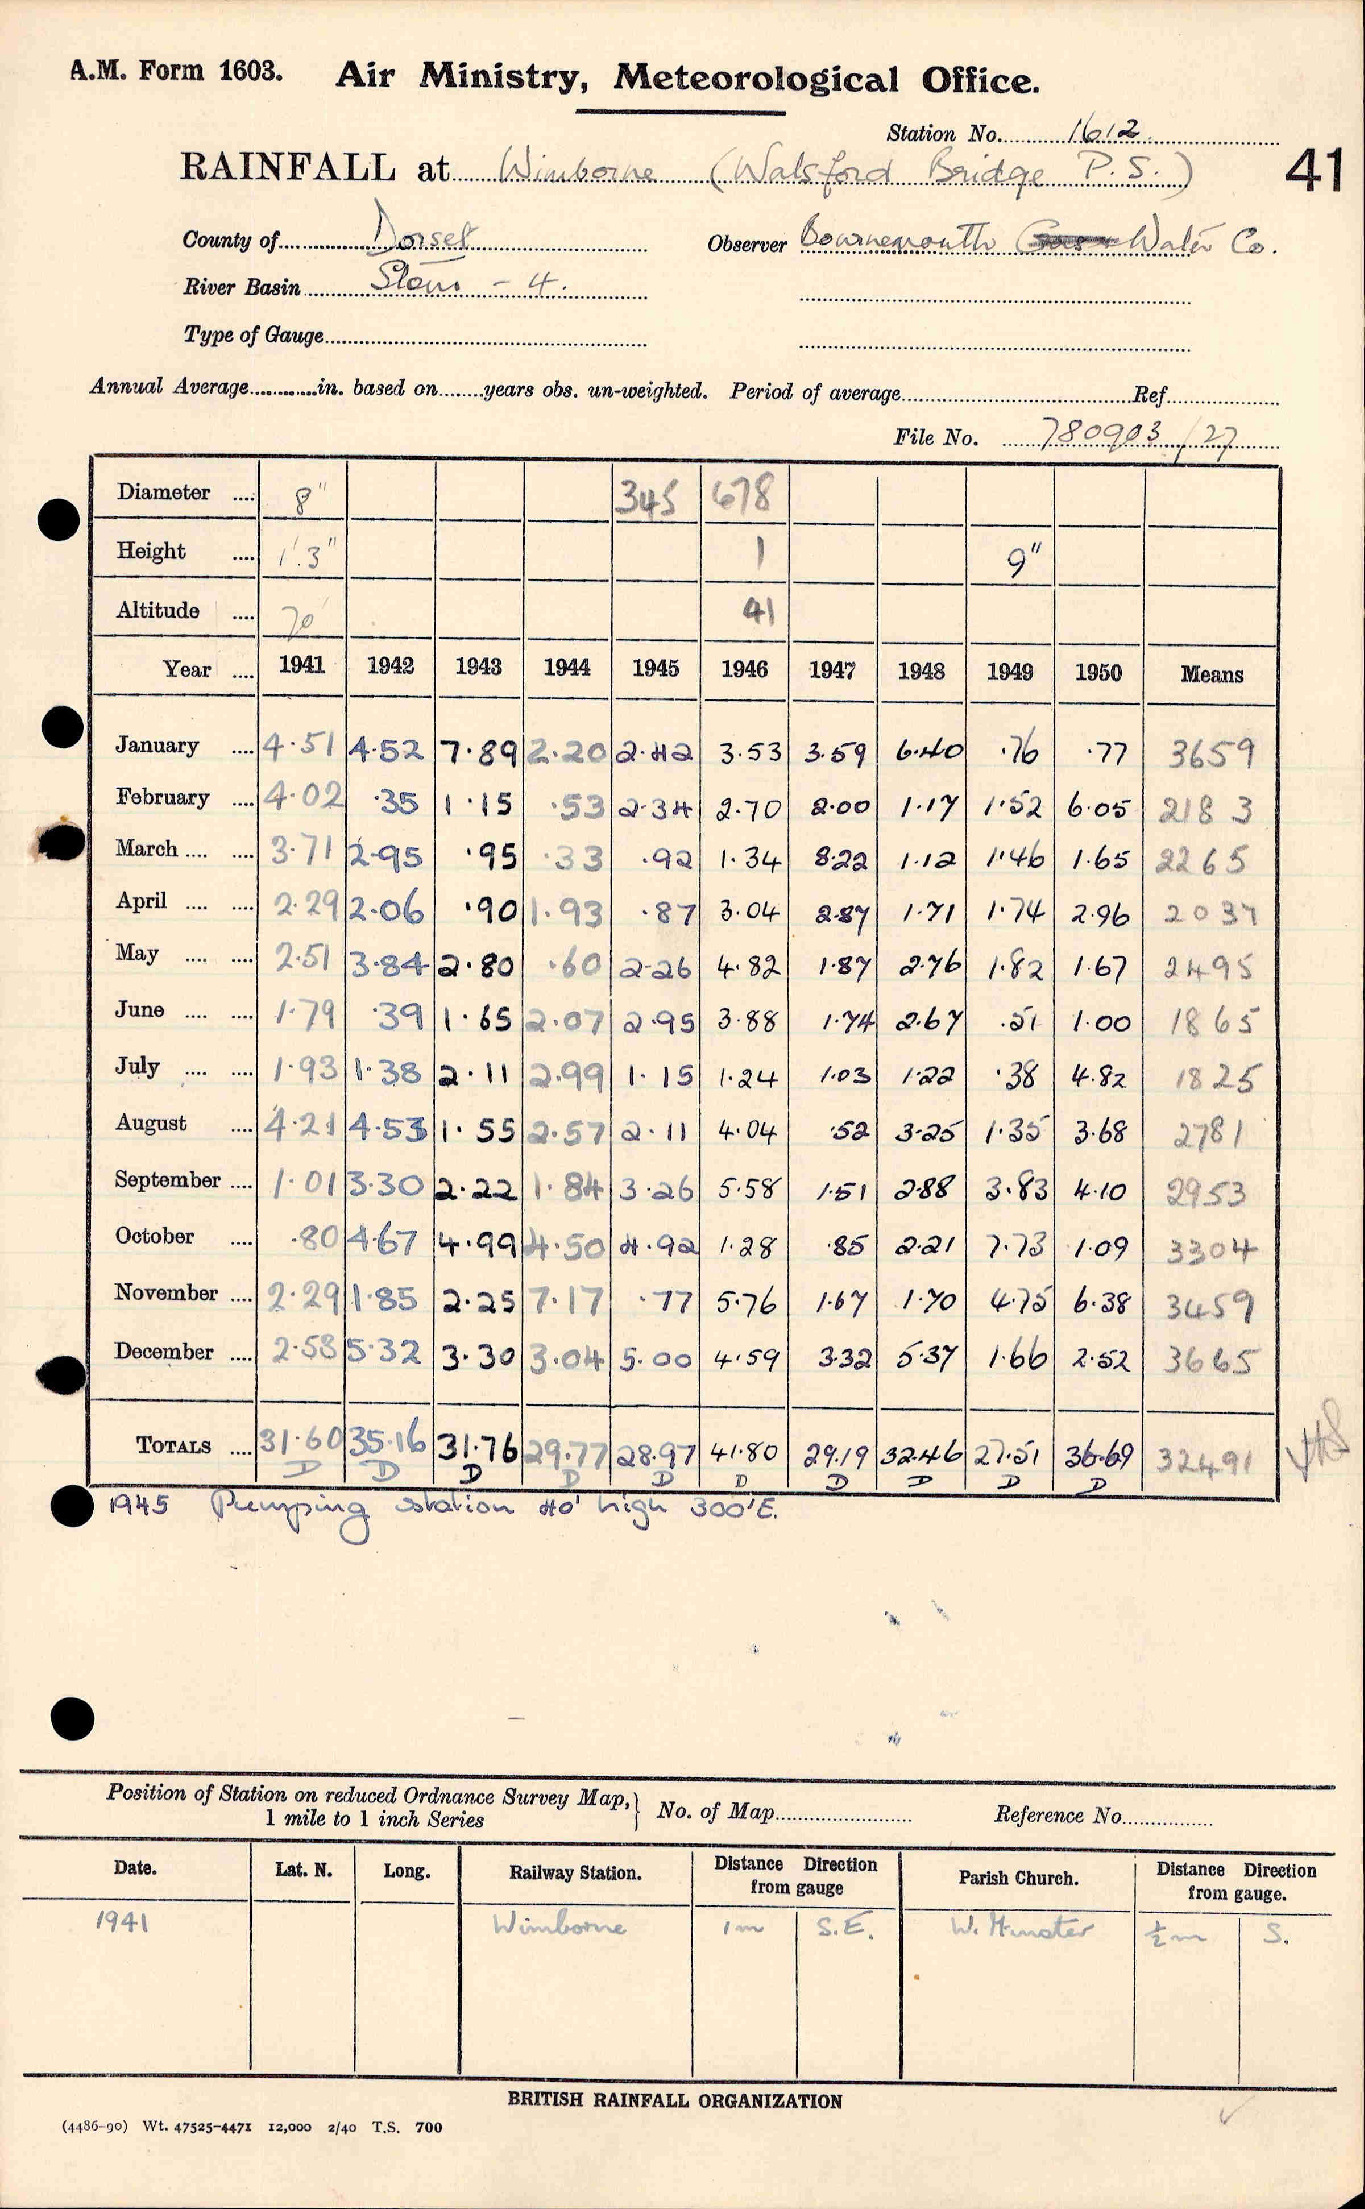 A.M. Form 1603. Air Ministry, Meteorological Office.
Station No. 1612
RAINFALL at Wimborne (Walsford Bridge P.S.) 41
County of Dorset Observer Bournemouth Gas & Water Co.
River Basin Stour - 4.
Type of Gauge
Annual Average in. based on years obs. un-weighted. Period of average Ref
File No. 780903/27
Diameter .... 8" 345 678
Height .... 1'.3" 1 9"
Altitude .... 70' 41
Year .... 1941 1942 1943 1944 1945 1946 1947 1948 1949 1950 Means
January .... 4.51 4.52 7.89 2.20 2.42 3.53 3.59 6.40 .76 .77 3659
February .... 4.02 .35 1.15 .53 2.34 2.70 2.00 1.17 1.52 6.05 2183
March .... .... 3.71 2.95 .95 .33 .92 1.34 8.22 1.12 1.46 1.65 2265
April .... .... 2.29 2.06 .90 1.93 .87 3.04 2.87 1.71 1.74 2.96 2037
May .... .... 2.51 3.84 2.80 .60 2.26 4.82 1.87 2.76 1.82 1.67 2495
June .... .... 1.79 .39 1.65 2.07 2.95 3.88 1.74 2.67 .51 1.00 1865
July .... .... 1.93 1.38 2.11 2.99 1.15 1.24 1.03 1.22 .38 4.82 1825
August .... 4.21 4.53 1.55 2.57 2.11 4.04 .52 3.25 1.35 3.68 2781
September .... 1.01 3.30 2.22 1.84 3.26 5.58 1.51 2.88 3.83 4.10 2953
October .... .80 4.67 4.99 4.50 4.92 1.28 .85 2.21 7.73 1.09 3304
November .... 2.29 1.85 2.25 7.17 .77 5.76 1.67 1.70 4.75 6.38 3459
December .... 2.53 5.32 3.30 3.04 5.00 4.59 3.32 5.37 1.66 2.52 3665
TOTALS .... 31.60 35.16 31.76 29.77 28.97 41.80 29.19 32.46 27.51 36.69 32491
D D D D D D D D D D
1945 Pumping station 40' high 300'E.
Position of Station on reduced Ordnance Survey Map, } No. of Map Reference No.
1 mile to 1 inch Series
Date. Lat. N. Long. Railway Station. Distance Direction from gauge Parish Church. Distance Direction from gauge.
1941 Wimborne 1m S.E. W. Minster ½m S.
BRITISH RAINFALL ORGANIZATION
(4486-90) Wt. 47525-4471 12,000 2/40 T.S. 700